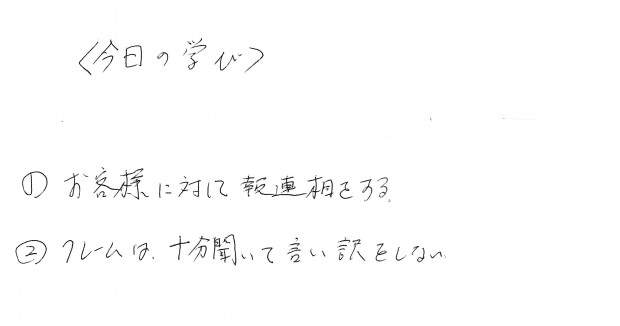 〈今日の学び〉
① お客様に対して報連相をする。
② クレームは、十分聞いて言い訳をしない